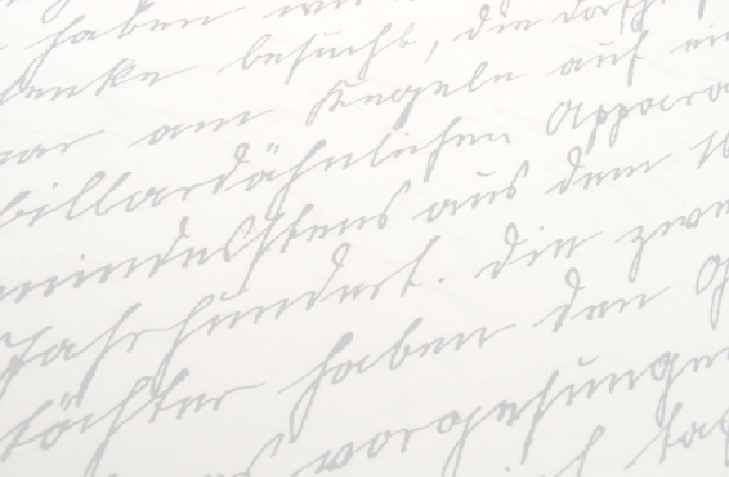 haben
denke besucht, die
war am Kegeln auf
billardähnlichen Appara
mindestens aus dem 16
Jahrhundert. Die zwe
töchter haben den
vorgesungen